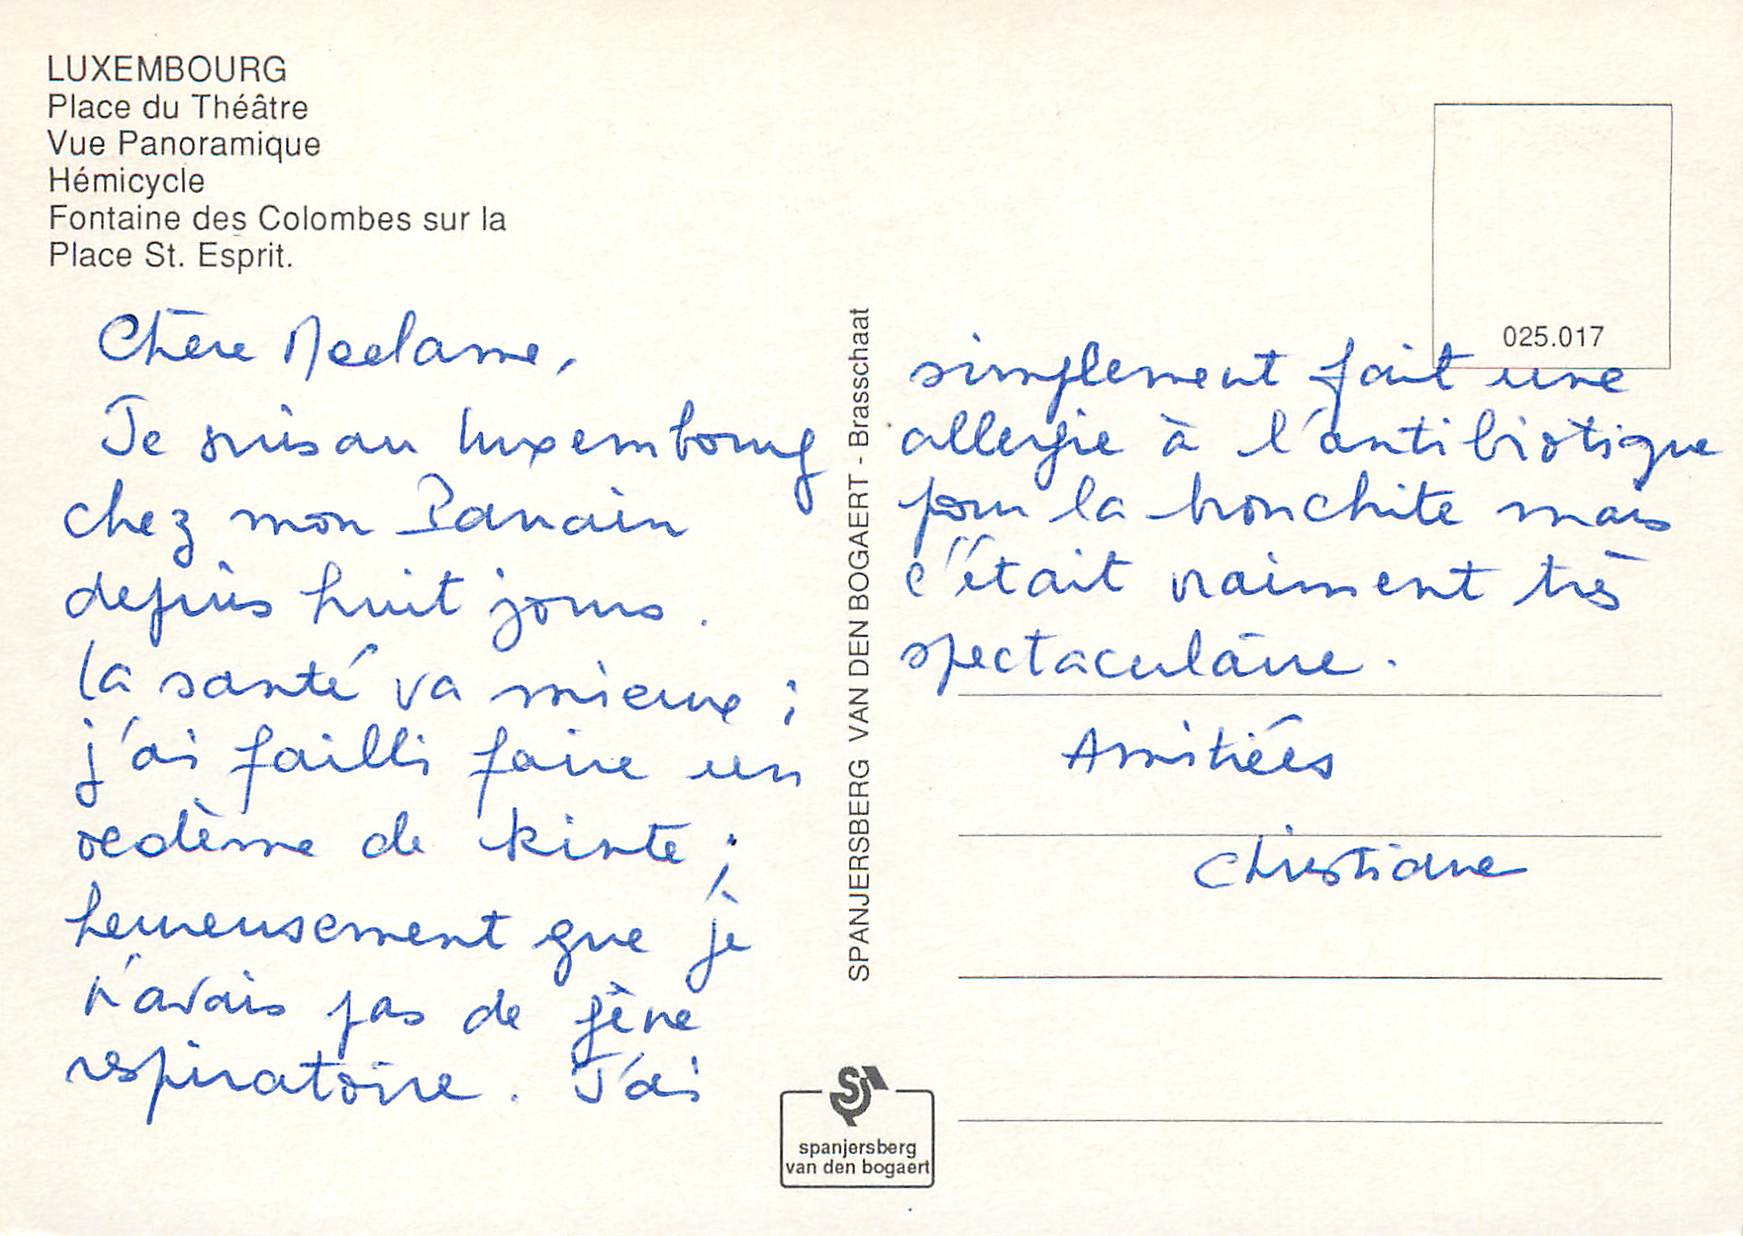 LUXEMBOURG
Place du Théâtre
Vue Panoramique
Hémicycle
Fontaine des Colombes sur la
Place St. Esprit.
Chère Madame,
Je suis au luxembourg
chez mon Parrain
depuis huit jours.
la santé va mieux ;
j'ai failli faire un
oedème de kinte ;
heureusement que je
n'avais pas de gène
respiratoire. J'ai
SPANJERSBERG VAN DEN BOGAERT - Brasschaat
spanjersberg
van den bogaert
025.017
simplement fait une
allergie à l'antibiotique
pour la bronchite mais
c'était vraiment très
spectaculaire.
Amitiées
Christiane